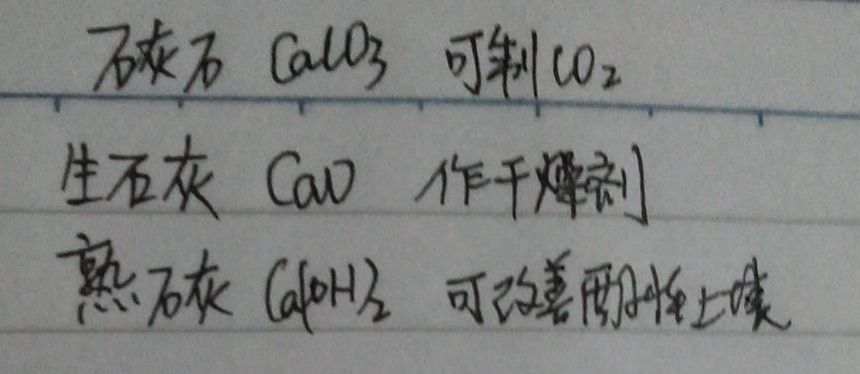 石灰石 CaCO3 可制CO2
生石灰 CaO 作干燥剂
熟石灰 Ca(OH)2 可改善酸性土壤